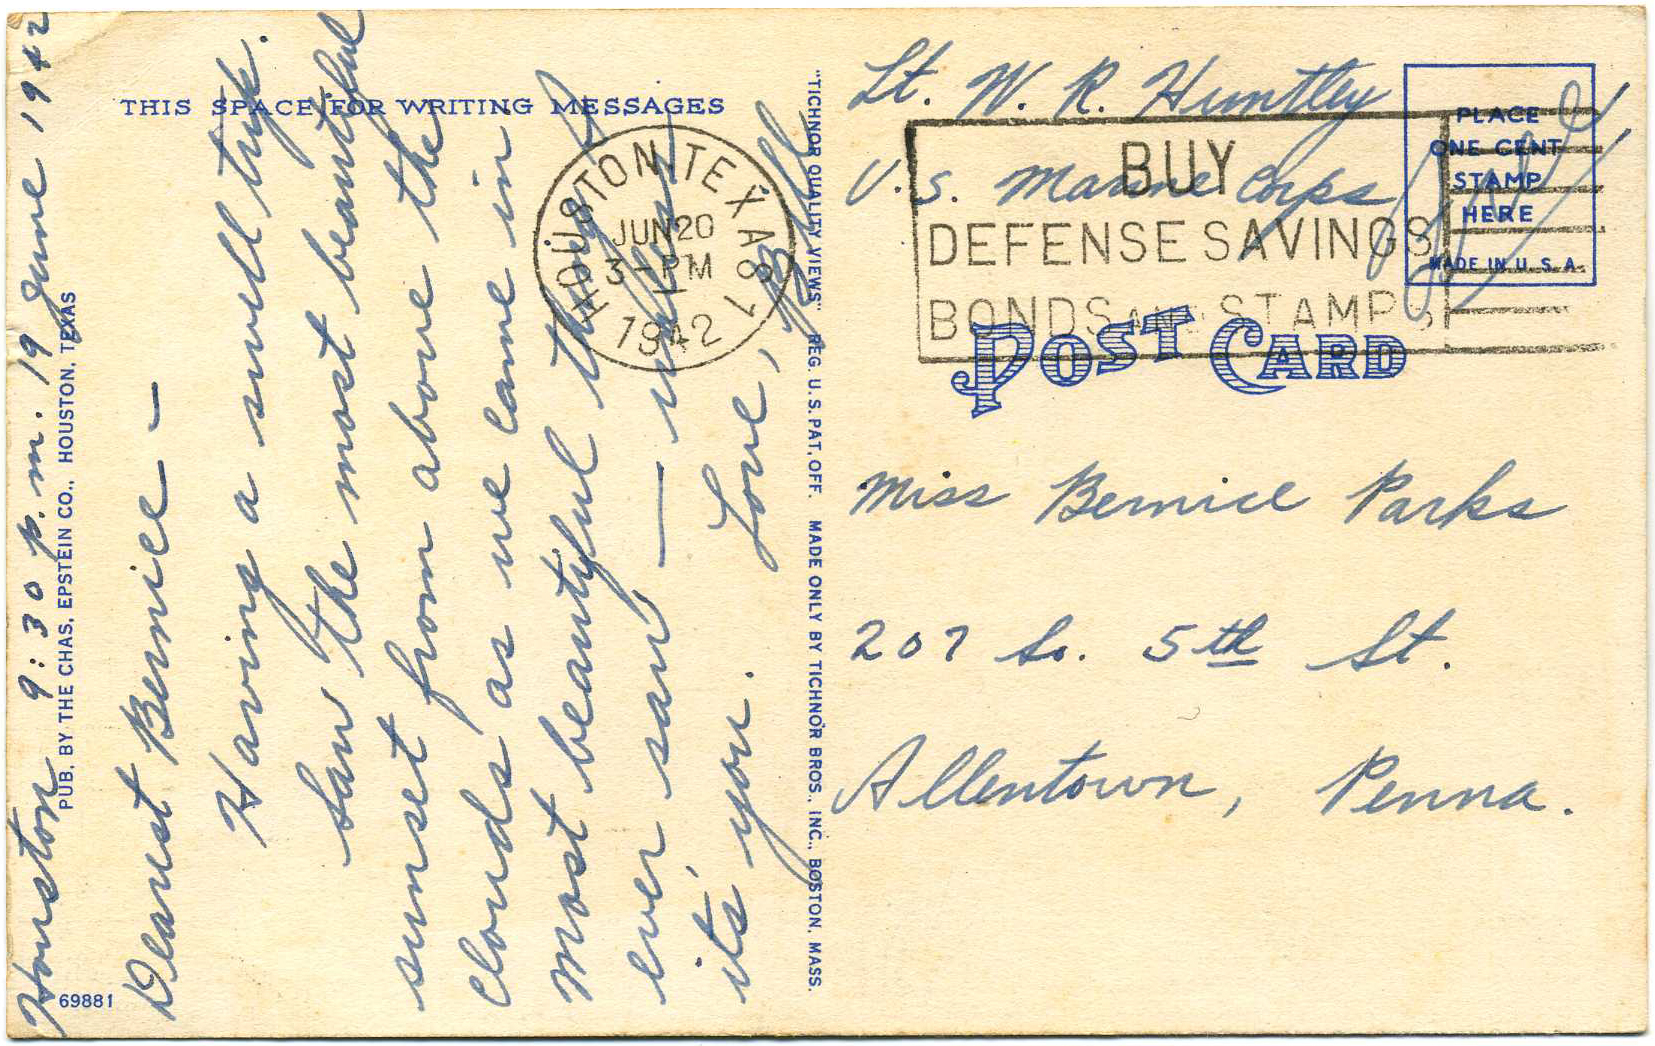 Houston 9:30 p.m. 19 June 1942
Dearest Bernice —
Having a swell trip.
Saw the most beautiful
sunset from above the
clouds as we came in.
Most beautiful thing I
ever saw — unless
its you.
Love, Bill
THIS SPACE FOR WRITING MESSAGES
PUB. BY THE CHAS. EPSTEIN CO., HOUSTON, TEXAS
69881
"TICHNOR QUALITY VIEWS" REG. U.S. PAT. OFF. MADE ONLY BY TICHNOR BROS., INC., BOSTON, MASS.
HOUSTON, TEXAS
JUN 20
3-PM
1942
Lt. W. R. Huntley
U.S. Marine Corps
BUY
DEFENSE SAVINGS
BONDS AND STAMPS
PLACE
ONE CENT
STAMP
HERE
MADE IN U.S.A.
POST CARD
Miss Bernice Parks
207 So. 5th St.
Allentown, Penna.